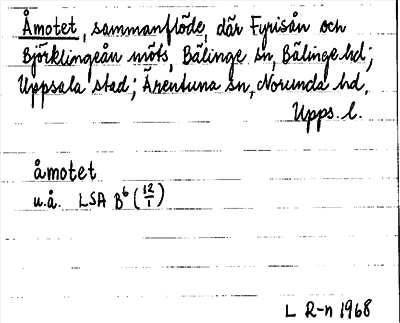 Åmotet, sammanflöde, där Fyrisån och
Björklingeån möts, Bälinge sn, Bälinge hd;
Uppsala stad; Ärentuna sn, Norunda hd,
Upps. l.
åmotet
u.å. LSA B⁶ (12/1)
L R-n 1968